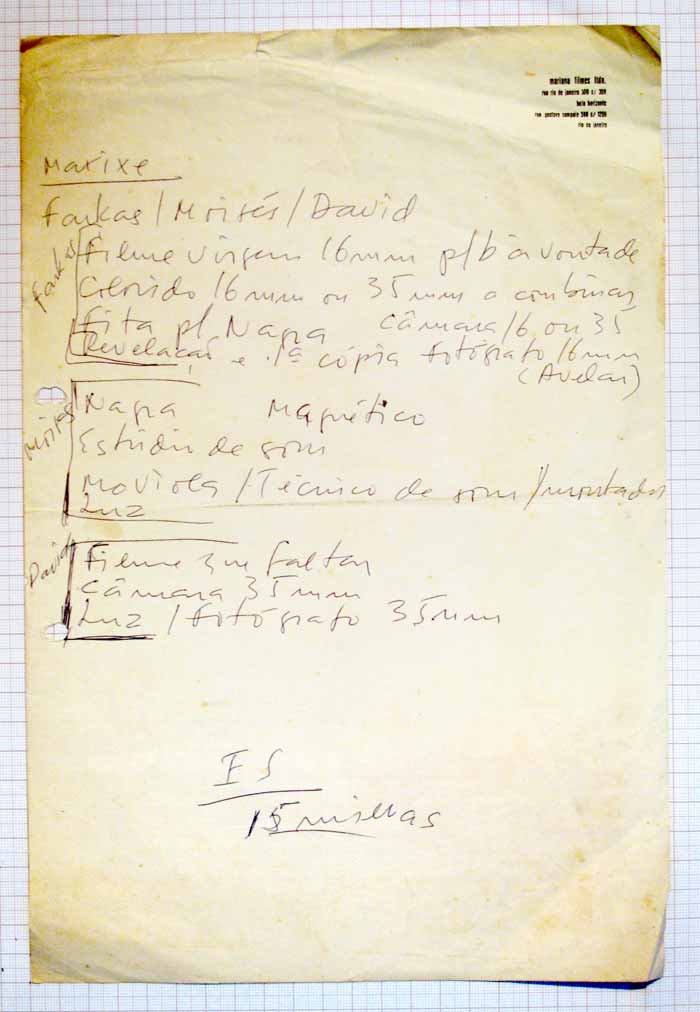 mariana filmes ltda.
rua rio de janeiro 300 s/ 309
belo horizonte
rua gustavo sampaio 598 s/ 1206
rio de janeiro
Maxixe
Farkas / Moisés / David
Farkas
Filme virgem 16mm p/b à vontade
Colorido 16mm ou 35mm a combinar
Fita p/ Nagra câmara 16 ou 35
Revelação e 1ª cópia fotógrafo 16mm
(Avelar)
Moisés
Nagra Magnético
Estúdio de som
Moviola / Técnico de som / montador
Luz
David
Filme que faltar
Câmara 35mm
Luz / fotógrafo 35mm
15